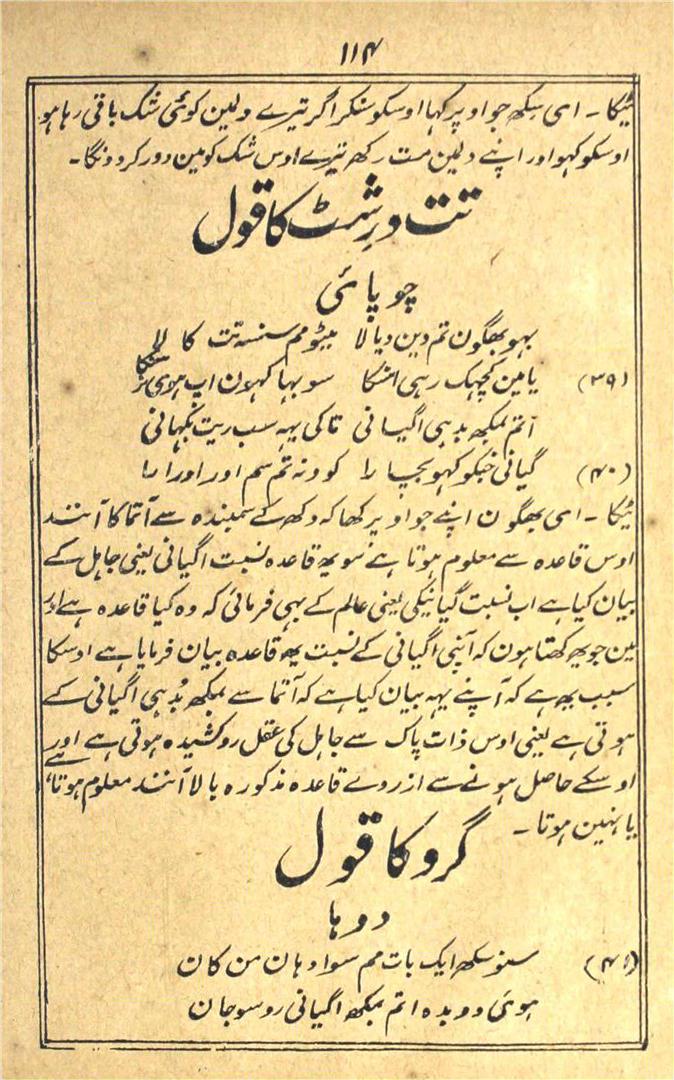 ۱۱۴
ٹیکا ۔ ای سکھ جو اوپر کہا اوسکو سنکر اگر تیرے دلمین کوئی شک باقی رہا ہو
اوسکو کہو اور اپنے دلمین مت رکھ تیرے اوس شک کو مین دور کرونگا ۔
تت درشٹ کا قول
چوپائی
بہو بھگون تم دین دیالا میٹو مم سنسہ تت کا لا
(۳۹) یا مین کچہک رہی اشنکا سو بہا کہون اب ہوی
آتم بمکھ بدہی اگیانی تاکی یہہ سب ریت بکہانی
(۴۰) گیانی جنکو کہو بچارا کوونہ تم سم اور اودارا
ٹیکا ۔ ای بھگون اپنے جو اوپر کھا کہ دکھ کے سمبندہ سے آتما کا آنند
اوس قاعدہ سے معلوم ہوتا ہے سو یھ قاعدہ نسبت اگیانی یعنی جاہل کے
بیان کیا ہے اب نسبت گیانیکی یعنی عالم کے بہی فرمائی کہ وہ کیا قاعدہ ہے اور
مین جو یھ کھتا ہون کہ آپنی اگیانی کے نسبت یھ قاعدہ بیان فرمایا ہے اوسکا
سبب یھ ہے کہ آپنے یہہ بیان کیا ہے کہ آتما سے بمکھ بُدہی اگیانی کے
ہوتی ہے یعنی اوس ذات پاک سے جاہل کی عقل روکشیدہ ہوتی ہے اور
اوسکے حاصل ہونے سے از روے قاعدہ مذکورہ بالا آنند معلوم ہوتا ہے
یا نہین ہوتا ۔
گرو کا قول
دوہا
(۴۱) سنو سکھ ایک بات مم سوادہان من کان
ہوئی دو بدہ اتم بمکھ اگیانی روسوجان